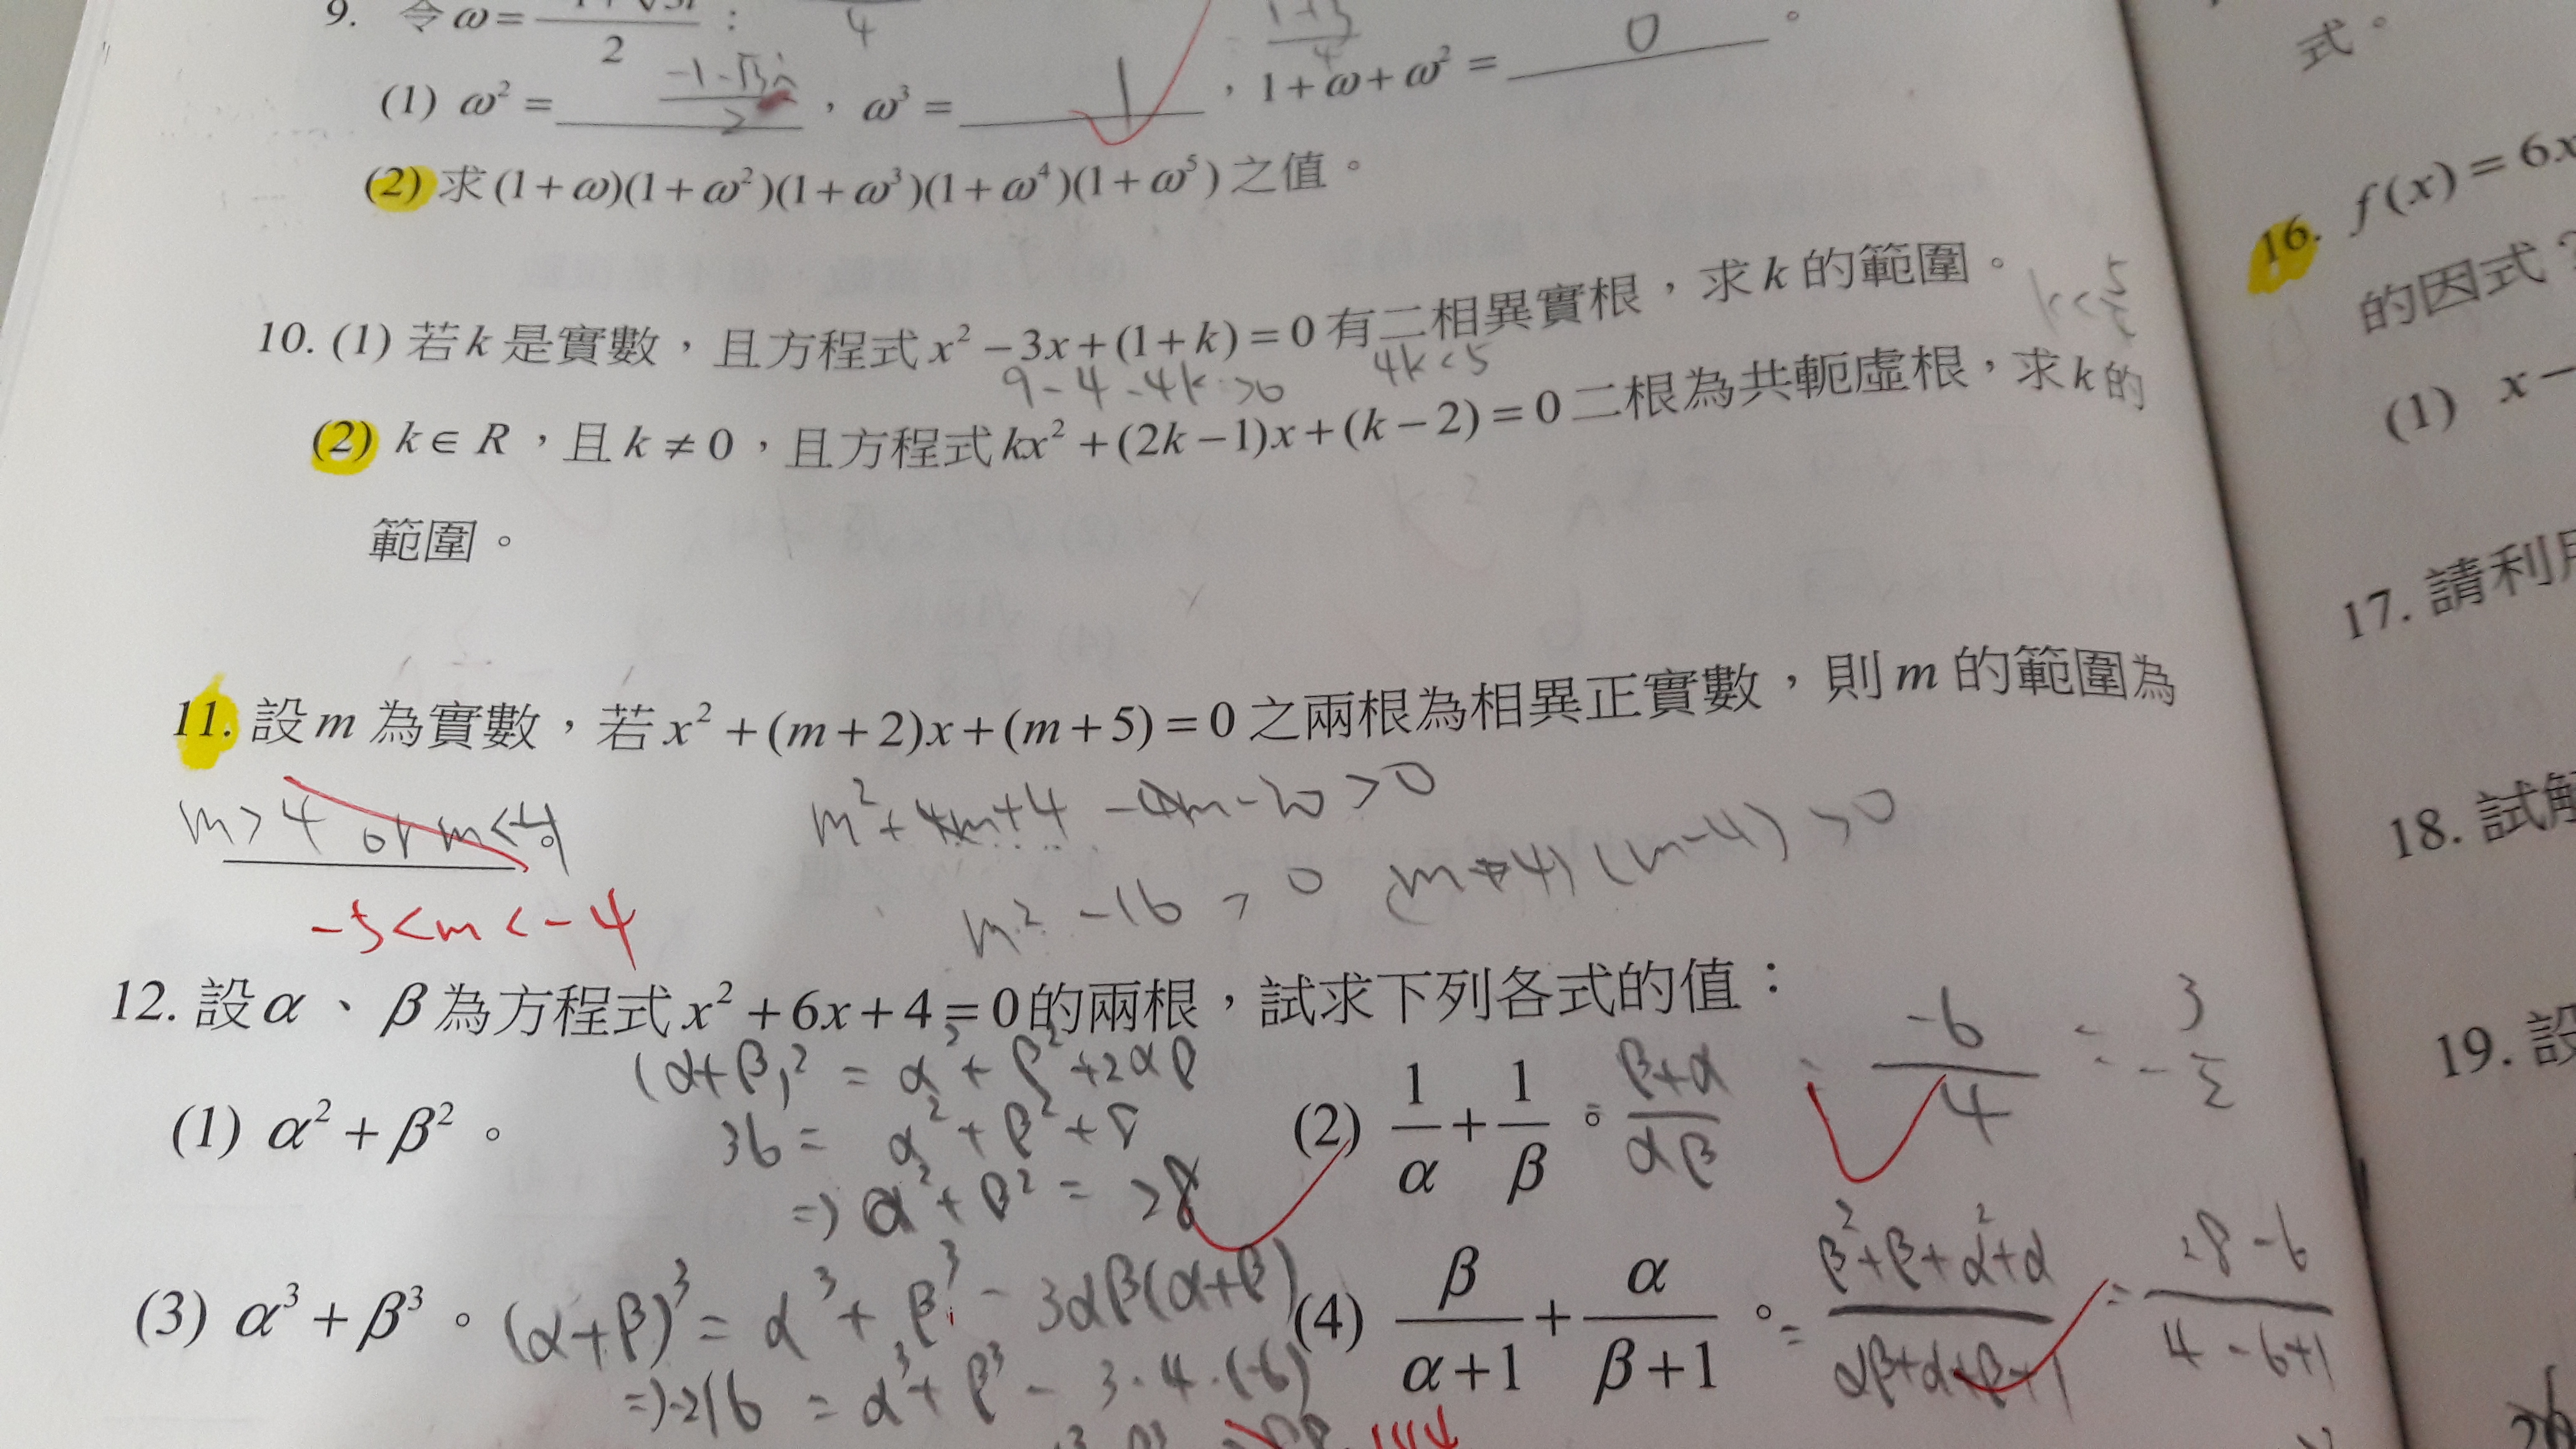 9. 令 ω =
2
4
4
(1) ω² = (-1-√3i)/2 , ω³ = 1 , 1+ω+ω² = 0 。
(2) 求 (1+ω)(1+ω²)(1+ω³)(1+ω⁴)(1+ω⁵) 之值。
10. (1) 若 k 是實數,且方程式 x² − 3x + (1+k) = 0 有二相異實根,求 k 的範圍。
9 - 4 - 4k > 0 4k < 5
(2) k ∈ R ,且 k ≠ 0 ,且方程式 kx² + (2k − 1)x + (k − 2) = 0 二根為共軛虛根,求 k 的
範圍。
11. 設 m 為實數,若 x² + (m+2)x + (m+5) = 0 之兩根為相異正實數,則 m 的範圍為
m > 4 or m <
m² + 4m + 4 - 4m - 20 > 0
m² - 16 > 0 (m+4)(m-4) > 0
-5 < m < -4
12. 設 α 、 β 為方程式 x² + 6x + 4 = 0 的兩根,試求下列各式的值:
(α+β)² = α² + β² + 2αβ
(1) α² + β² 。 36 = α² + β² + 8
⇒ α² + β² = 28
(2) 1/α + 1/β 。 = (β+α)/(αβ) = -6/4 = -3/2
(3) α³ + β³ 。 (α+β)³ = α³ + β³ - 3αβ(α+β)
⇒ -216 = α³ + β³ - 3·4·(-6)
(4) β/(α+1) + α/(β+1) 。 = (β²+β+α²+α)/(αβ+α+β+1) = (28-6)/(4-6+1)
式。
16. f(x) = 6x
的因式?
(1) x −
17. 請利用
18. 試解
19. 設